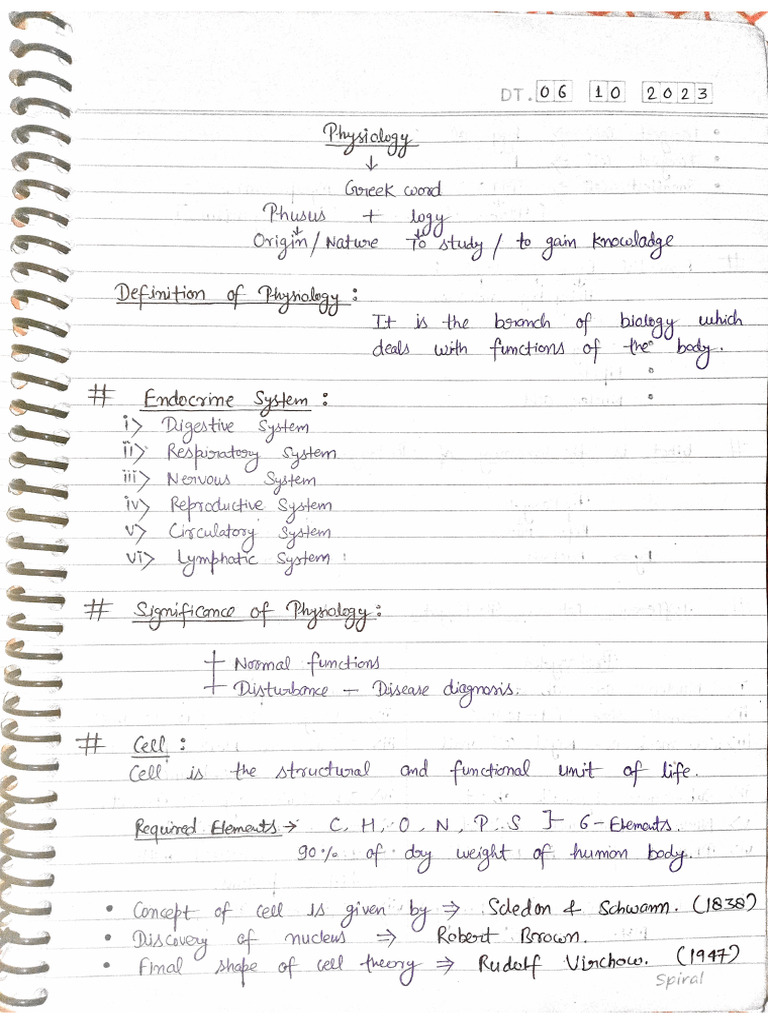 DT. 06 10 2023
Physiology
↓
Greek word
Phusus + logy
↓ ↓
Origin / Nature To study / to gain knowladge
Definition of Physiology :
It is the branch of biology which
deals with functions of the body.
# Endocrine System :
i> Digestive System
ii> Respiratory System
iii> Nervous System
iv> Reproductive System
v> Circulatory System
vi> Lymphatic System
# Significance of Physiology :
+ Normal functions
+ Disturbance – Disease diagnosis.
# Cell :
Cell is the structural and functional unit of life.
Required Elements → C, H, O, N, P, S } 6 - Elements.
90% of dry weight of human body.
• Concept of cell is given by ⇒ Scledon & Schwann. (1838)
• Discovery of nucleus ⇒ Robert Brown.
• Final shape of cell theory ⇒ Rudolf Virchow. (1947)
Spiral